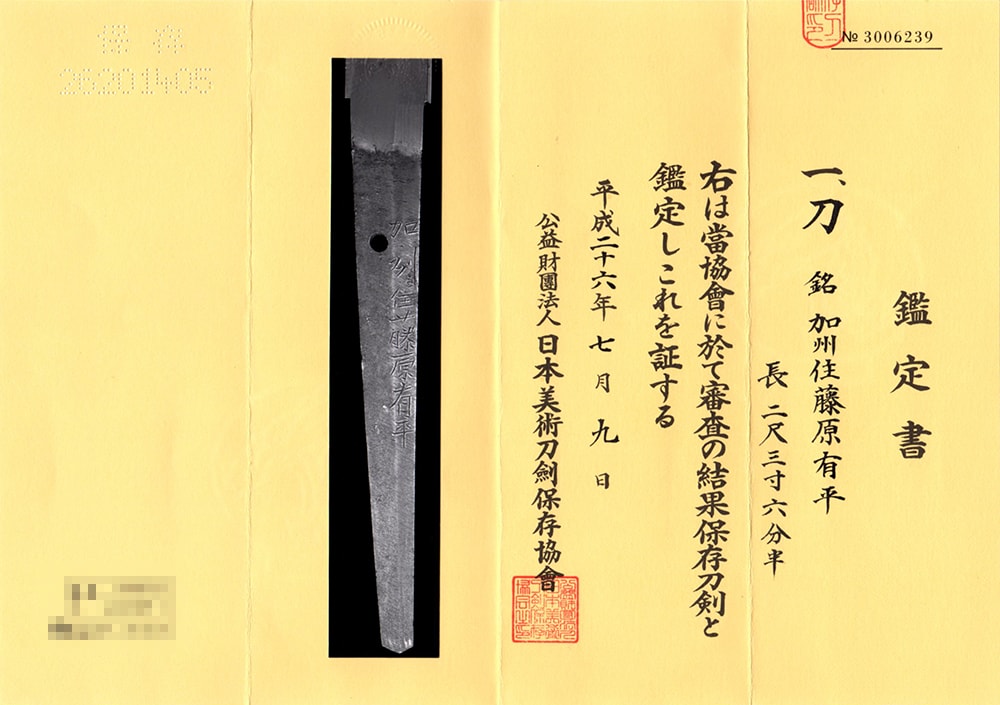 № 3006239
鑑定書
一、刀 銘 加州住藤原有平
長 二尺三寸六分半
右は當協會に於て審査の結果保存刀剣と
鑑定しこれを証する
平成二十六年七月九日
公益財團法人日本美術刀劍保存協會
加州住藤原有平
保存
26201405